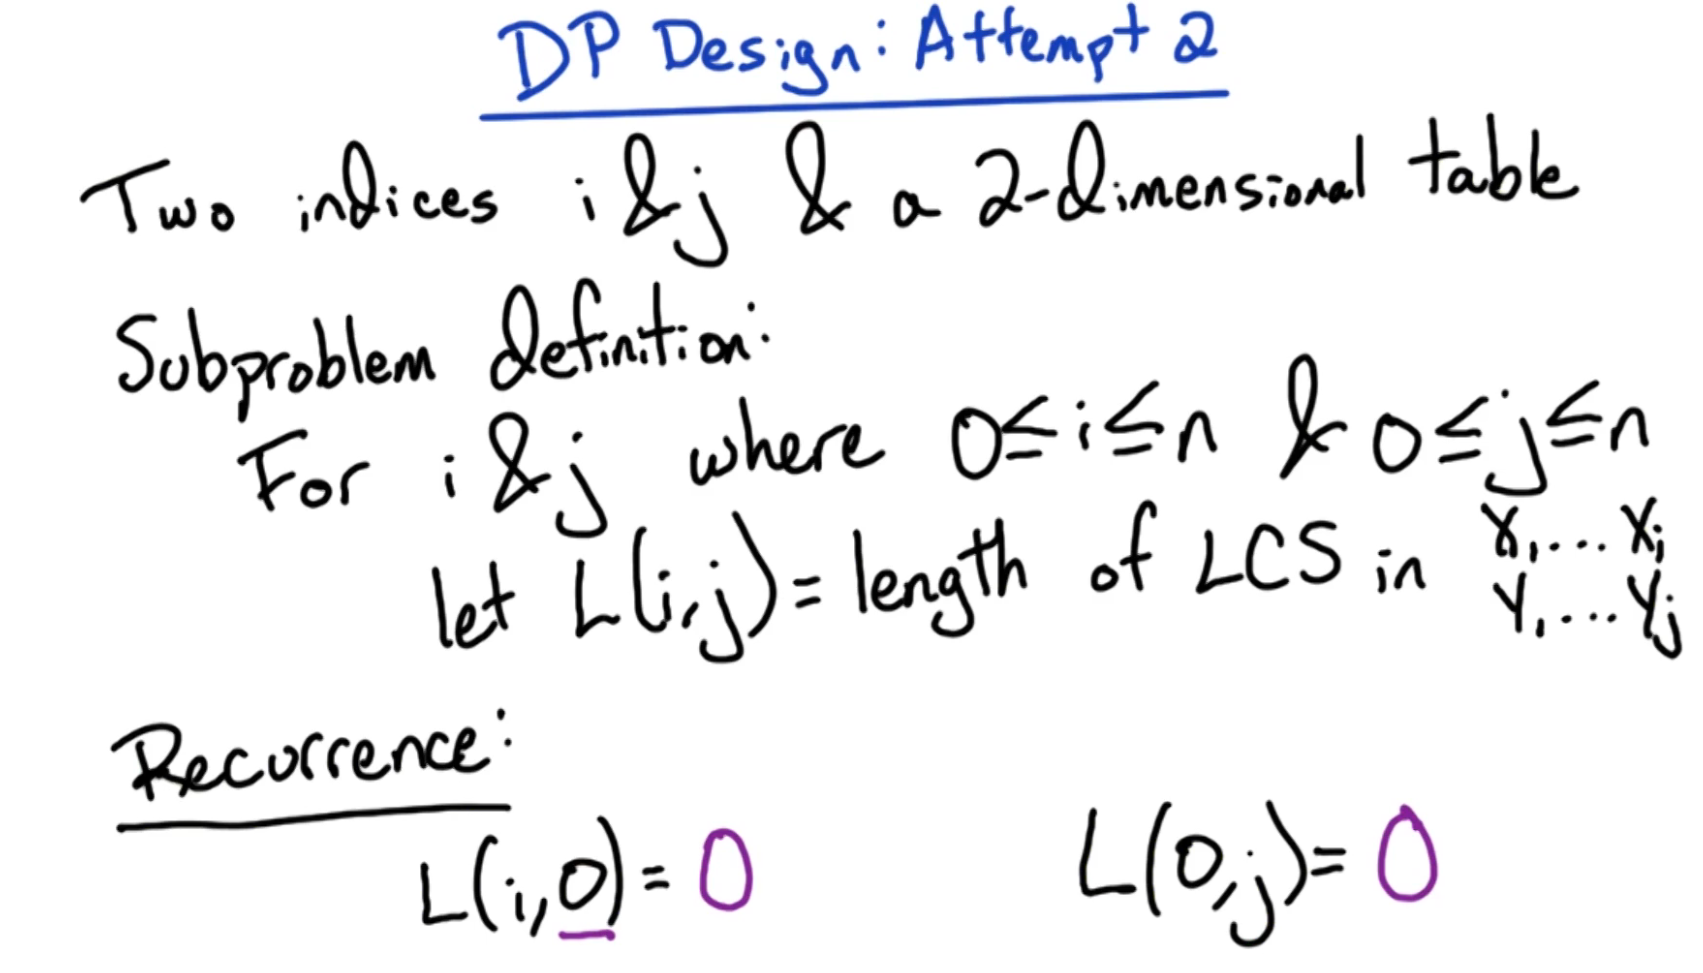 DP Design: Attempt 2
Two indices i & j & a 2-dimensional table
Subproblem definition:
For i & j where 0≤i≤n & 0≤j≤n
let L(i,j)= length of LCS in X₁...Xᵢ
Y₁...Yⱼ
Recurrence:
L(i,0)=0 L(0,j)=0